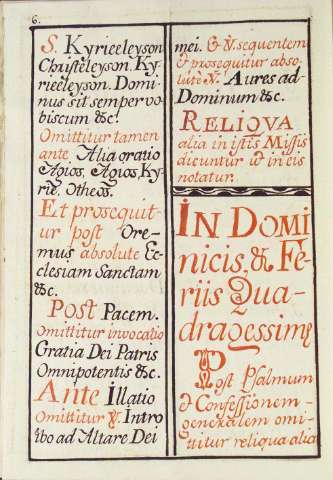 6.
S. Kyrieeleyson
Christeleyson. Ky-
rieeleyson. Domi-
nus sit semper vo-
biscum &c.
Omittitur tamen
ante Alia oratio
Agios, Agios, Ky-
rie, Otheos.
Et prosequit-
ur post Ore-
mus absolute Ec-
clesiam Sanctam
&c.
Post Pacem.
omittitur invocatio
Gratia Dei Patris
Omnipotentis &c.
Ante Illatio
Omittitur ℣. Intro
ibo ad Altare Dei
mei. & ℣. sequentem
& prosequitur abso-
lutè ℣. Aures ad-
Dominum &c.
RELIQVA
alia in istis Missis
dicuntur ut in eis
notatur.
IN DOMI
nicis, & Fe-
riis Qua-
dragessime
Post Psalmum
et Confessionem
generalem omi-
ttitur reliqua alia